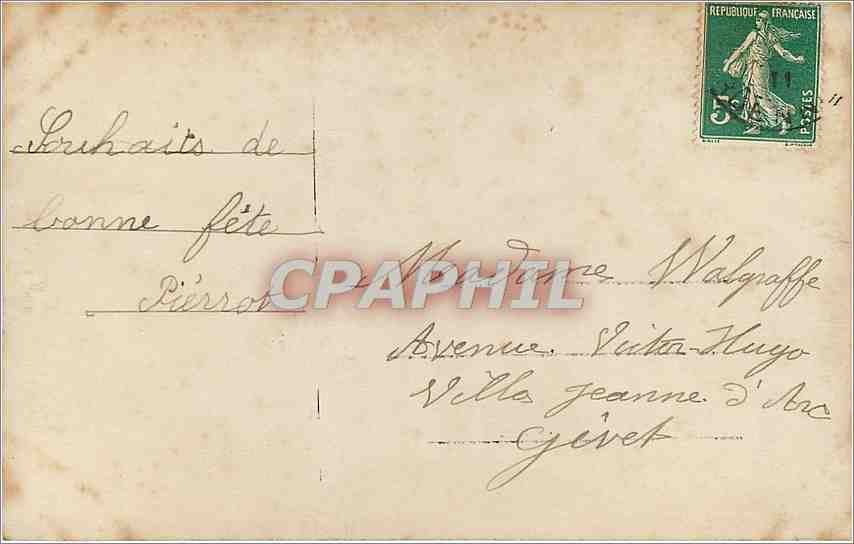 REPUBLIQUE FRANÇAISE
POSTES
5c
11
Souhaits de
bonne fête
Piérrot
CPAPHIL
Madame Walgraffe
Avenue Victor-Hugo
Villa Jeanne d'Arc
Givet